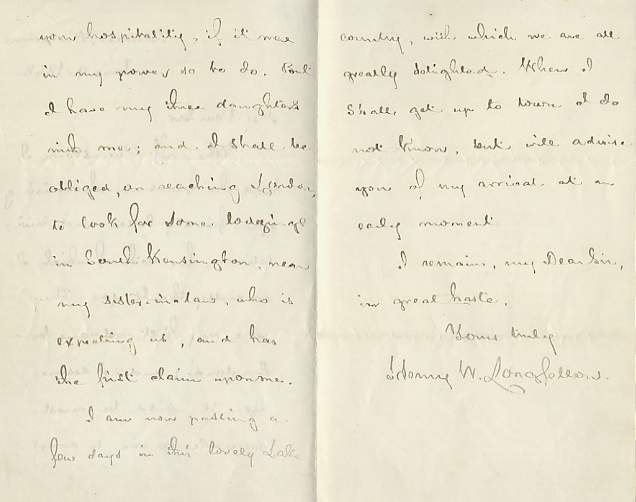 your hospitality, if it were
in my power so to do. But
I have my three daughters
with me; and I shall be
obliged, on reaching London,
to look for some lodgings
in South Kensington, near
my sister-in-law, who is
expecting us, and has
the first claim upon me.
I am now passing a
few days in this lovely Lake
country, with which we are all
greatly delighted. When I
shall get up to town I do
not know, but will advise
you of my arrival at an
early moment
I remain, my Dear Sir,
in great haste,
Yours truly
Henry W. Longfellow.